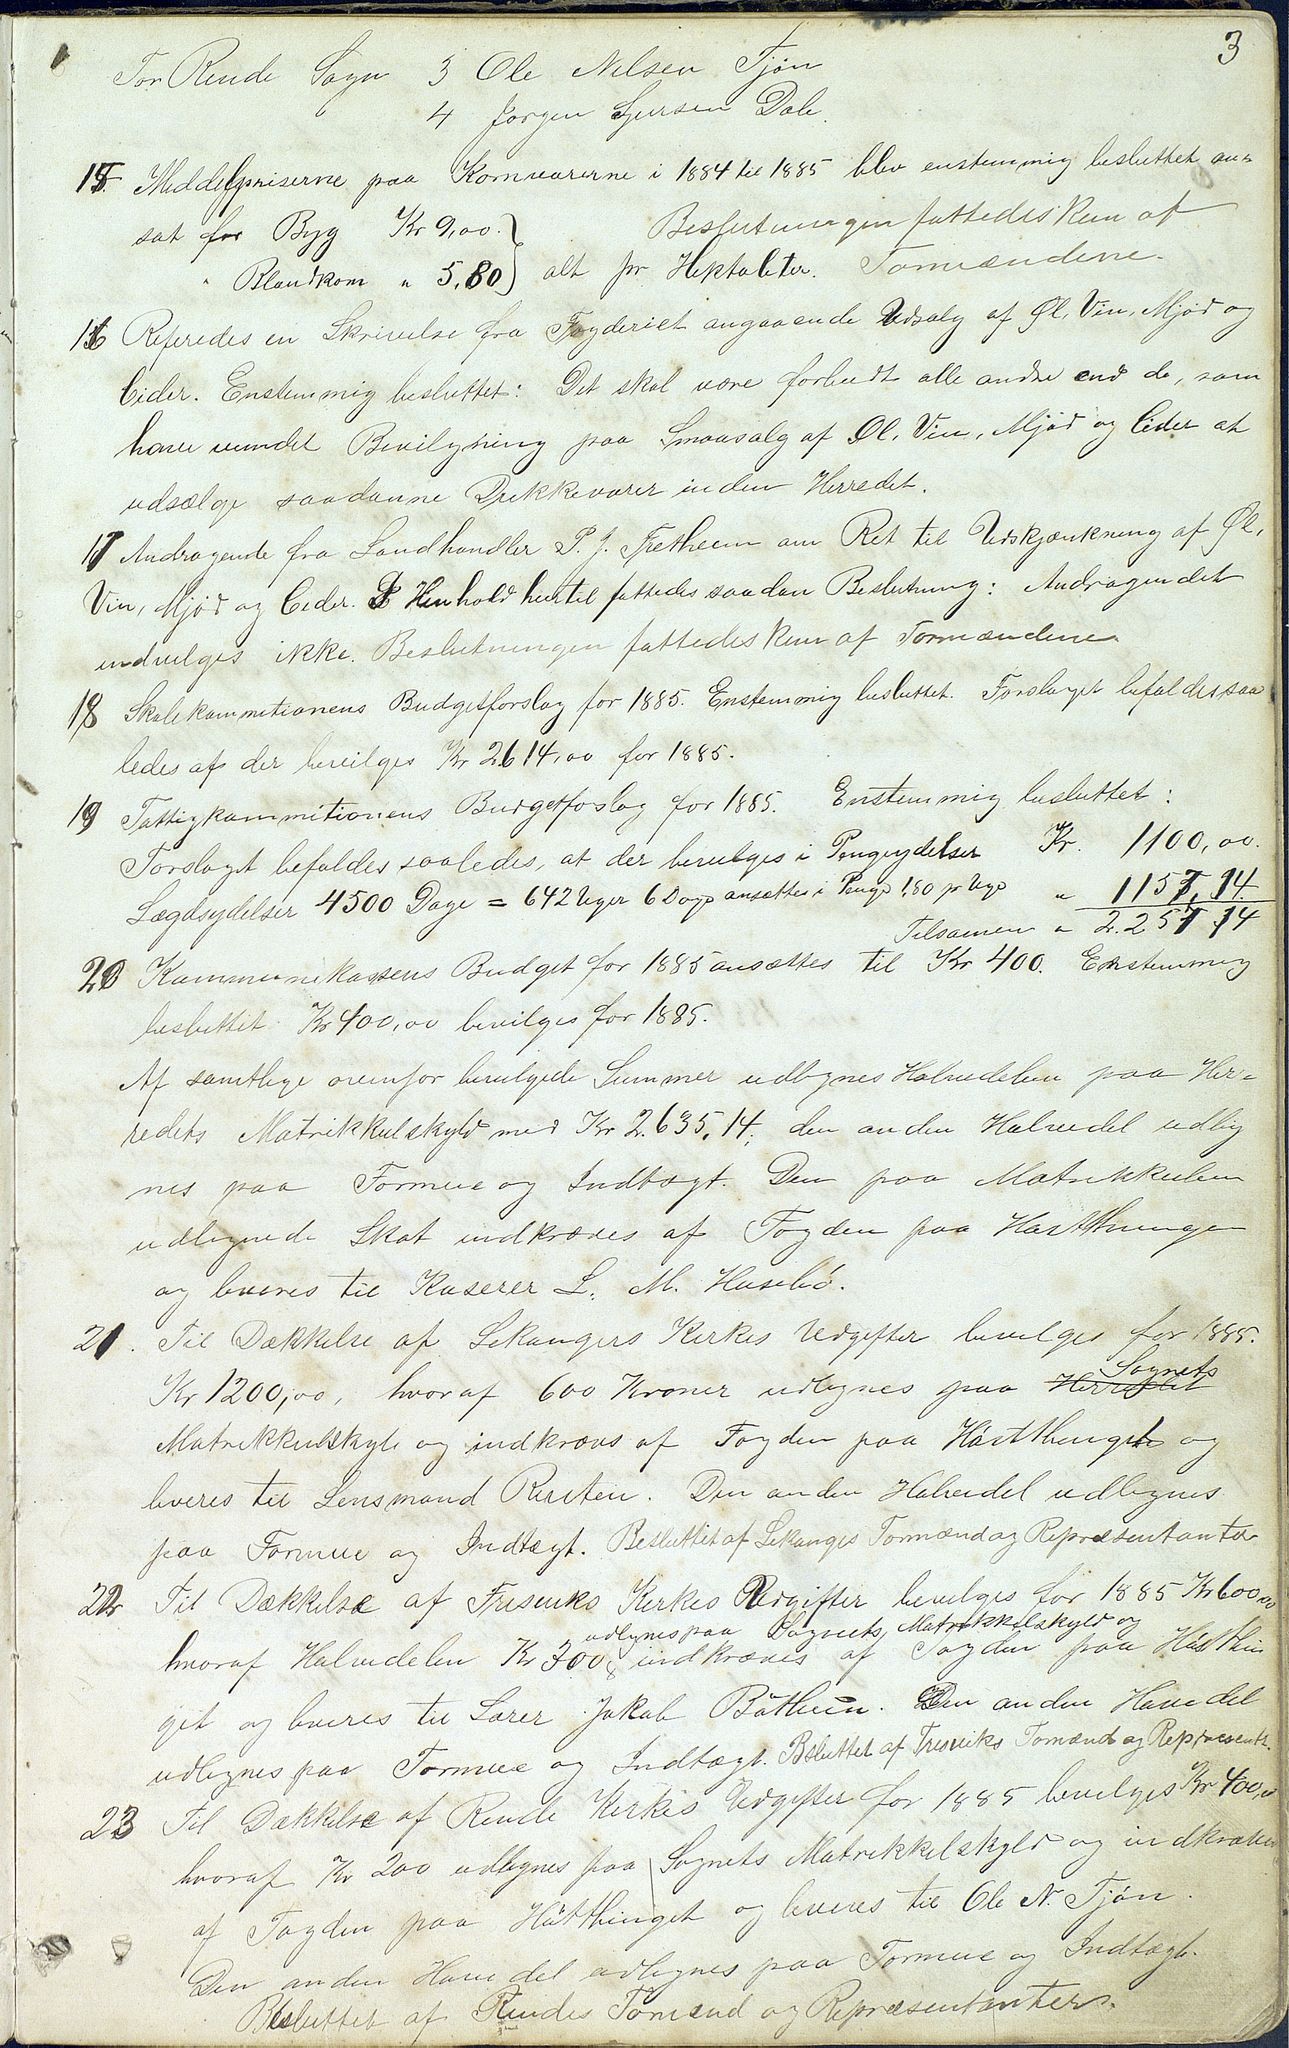 3
For Rende Sogn 3 Ole Nilsen Tjøn
4 Jørgen Sjursen Dale.
15. Middelpriserne paa Kornvarerne i 1884 til 1885 blev enstemmig besluttet an-
sat for Byg Kr 9,00. } Beslutningen fattedes kun af
" Blandkorn " 5,80 } alt pr Hektoliter. Formændene.
16 Referedes en Skrivelse fra Fogderiet angaaende Udsalg af Øl, Vin, Mjød og
Cider. Enstemmig besluttet: Det skal være forbudt alle andre end de, som
have vundet Bevilgning paa Smaasalg af Øl, Vin, Mjød og Cider at
udsælge saadanne Drikkevarer inden Herredet.
17 Andragende fra Landhandler P. J. Fretheim om Ret til Udskjænkning af Øl,
Vin, Mjød og Cider. I Henhold hertil fattedes saadan Beslutning: Andragendet
indvilges ikke. Beslutningen fattedes kun af Formændene
18 Skolekommitionens Budgetforslag for 1885. Enstemmig besluttet. Forslaget befaldes saa
ledes af der bevilges Kr 2614,00 for 1885.
19 Fattigkommitionens Budgetfoslag for 1885. Enstemmig besluttet:
Forslagt befaldes saaledes, at der bevilges i Pengeydelser Kr. 1100,00.
Lægdsydelser 4500 Dage = 642 Uger 6 Dage ansættes i Penge 1,80 pr Uge " 1157,14
Tilsamen " 2.257,14
20 Kommunekassens Budget for 1885 ansættes til Kr 400. Enstemmig
besluttet Kr 400,00 bevilges for 1885.
Af samtlige ovenfor bevilgede Summer udlignes Halvdelen paa Her-
redets Matrikkulskyld med Kr 2.635,14; den anden Halvdel udlig
nes paa Formue og Indtægt. Den paa Matrikkulen
udlignede Skat indkræves af Fogden paa Høstthinge
og leveres til Kaserer L. M. Husebø.
21. Til Dækkelse af Lekangers Kirkes Udgifter bevilges for 1885.
Kr 1200,00, hvoraf 600 Kroner udlignes paa Herredet Sognets
Matrikkulskyld og indkræves af Fogden paa Høstthinget og
leveres til Lensmand Risten. Den anden Halvdel udlignes
paa Formue og Indtægt. Besluttet af Lekanges Formænd og Repræsentanter
22 Til Dækkelse af Fresviks Kirkes Udgifter bevilges for 1885 Kr 600,00
udlignes paa Sognets Matrikkelskyld og
hvoraf Halvdelen Kr 300, indkræves af Fogden paa Høstthin
get og leveres til Lærer Jakob Bøthun. Den anden Havdel
udlignes paa Formue og Indtægt. Besluttet af Fresviks Formænd og Repræsentt.
23 Til Dækkelse af Rende Kirkes Udgifter for 1885 bevilges Kr 400,00
hvoraf Kr 200 udlignes paa Sognets Matrikkelskyld og indkræves
af Fogden paa Høstthinget og leveres til Ole N. Tjøn.
Den anden Havedel udlignes paa Formue og Indtægt.
Besluttet af Rindes Formænd og Repræsentanter.